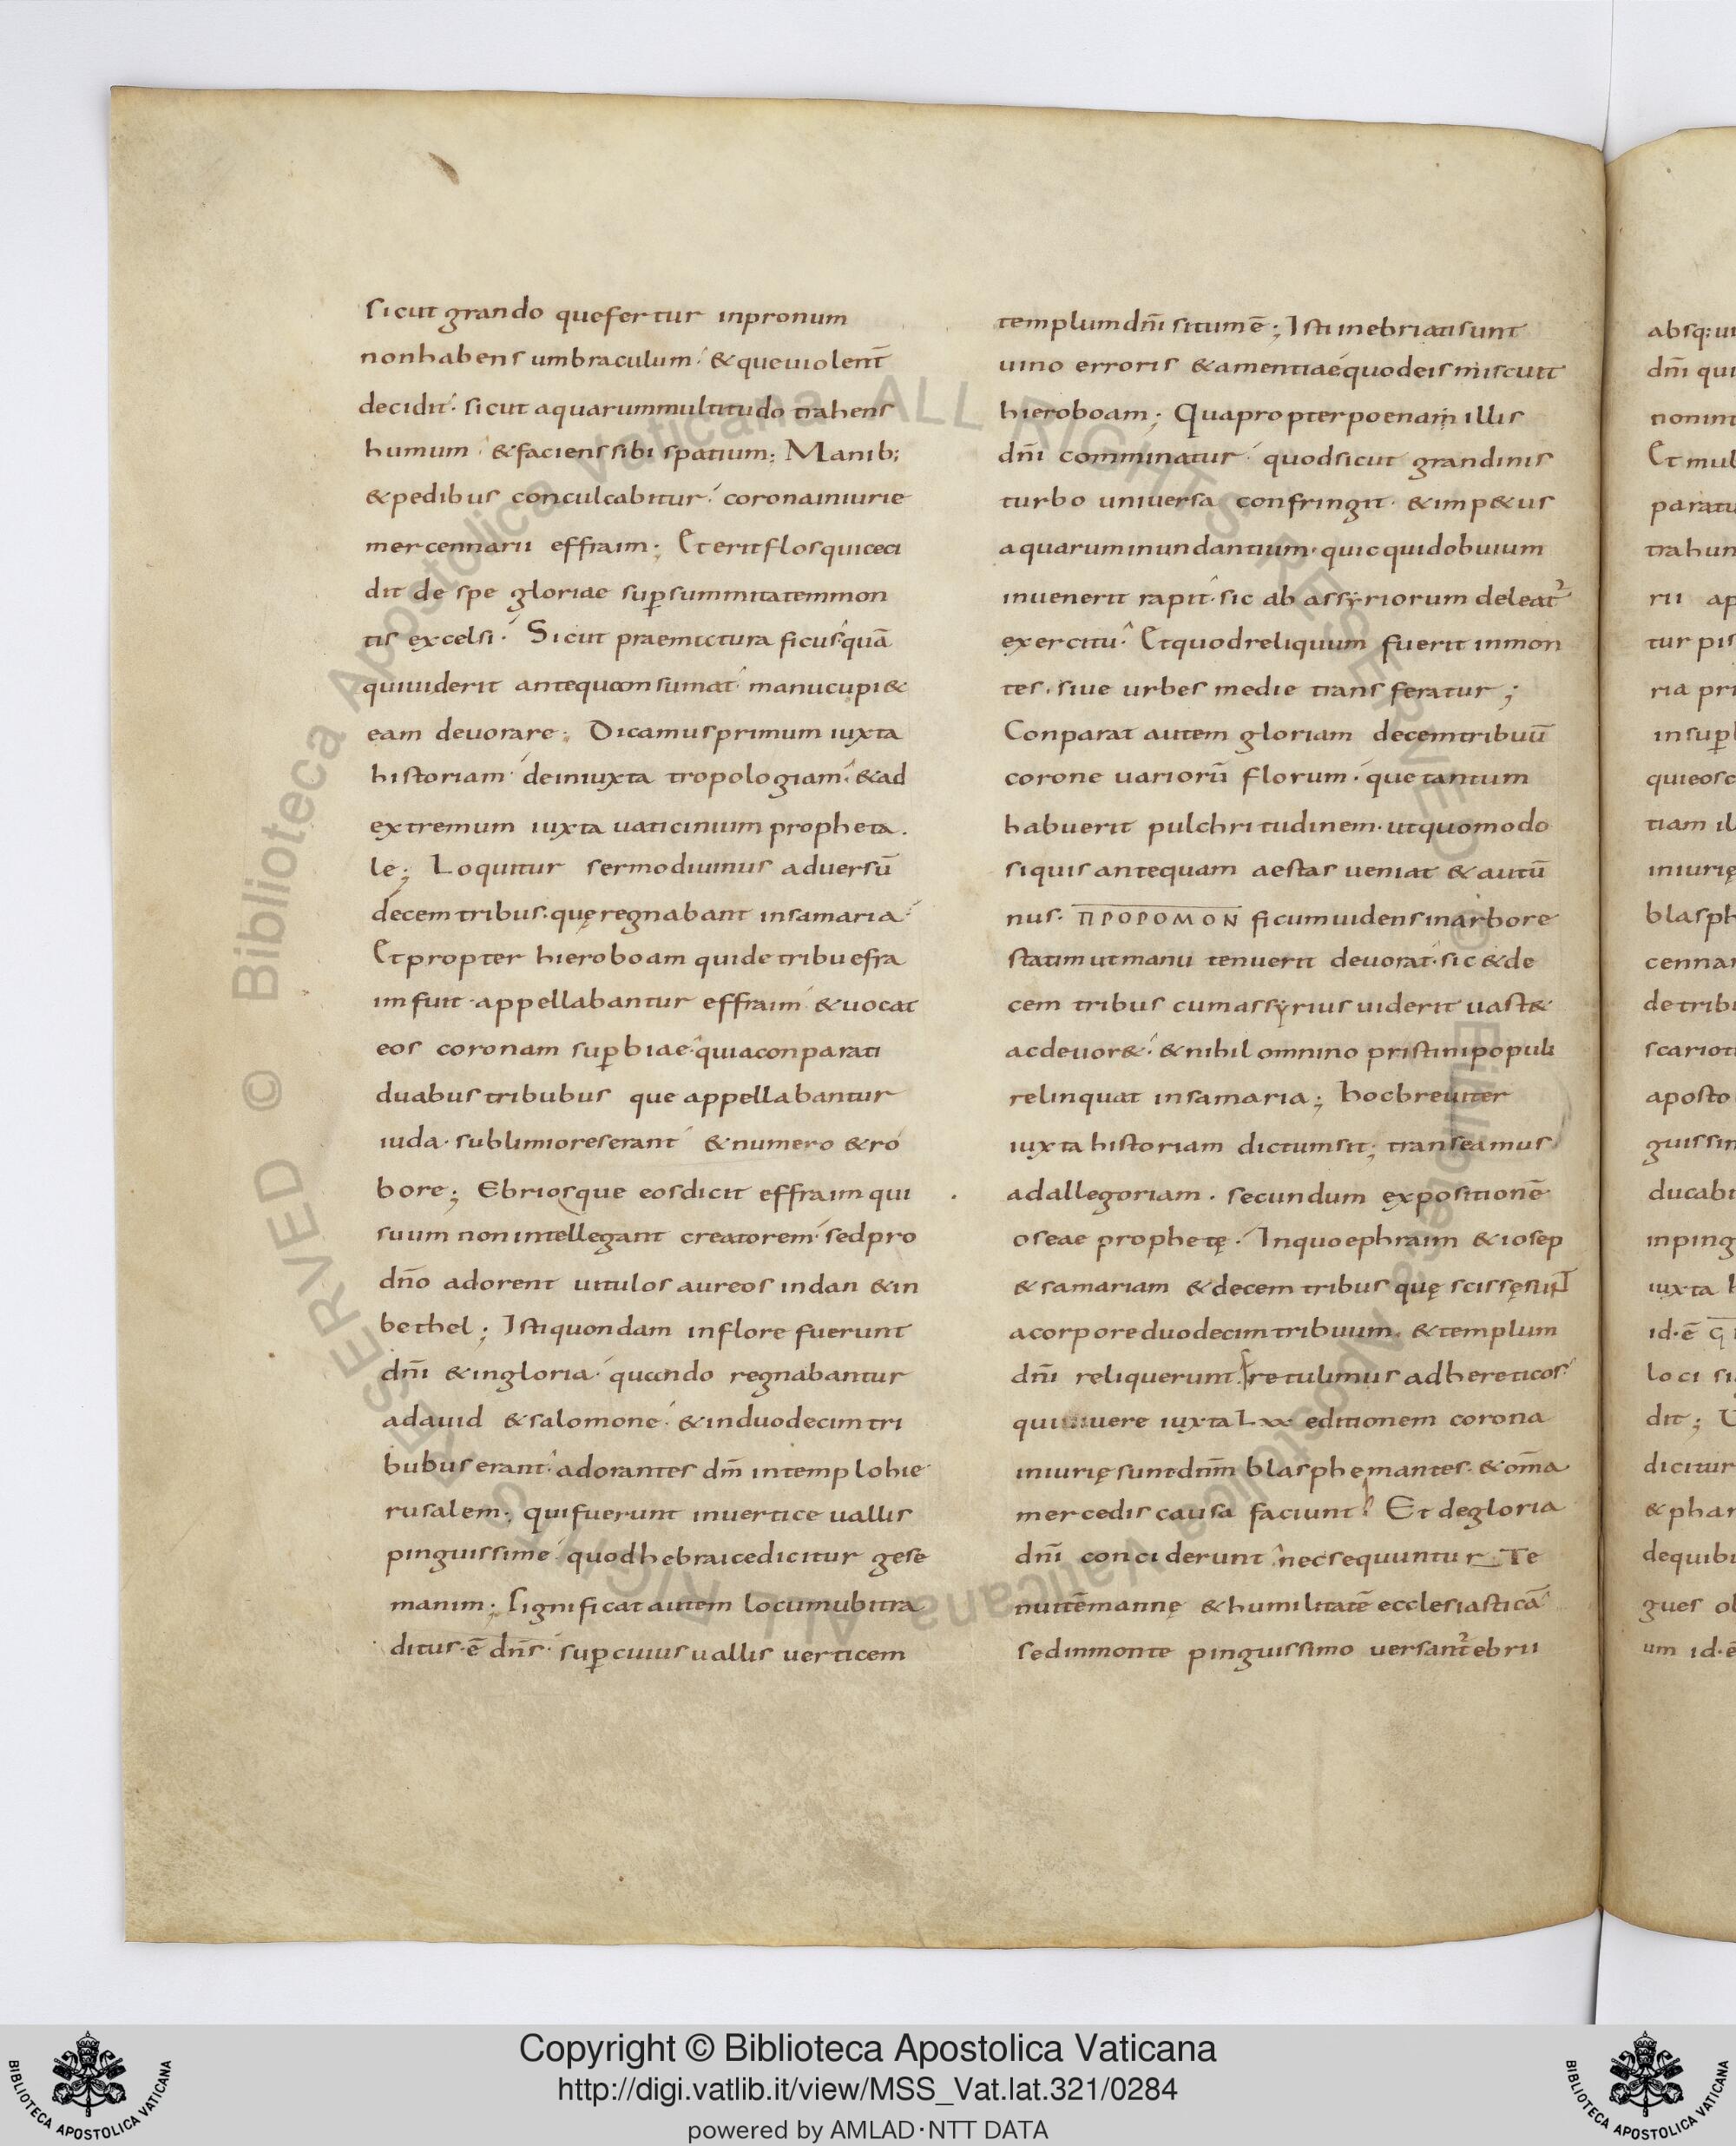 sicut grando que fertur in pronum
non habens umbraculum· & que uiolent̄
decidit· sicut aquarum multitudo trahens
humum· & faciens sibi spatium; Manib;
& pedibus conculcabitur· corona iniurie
mercennarii effraim; Et erit flos qui ceci
dit de spe gloriae sup̄ summitatem mon
tis excelsi· Sicut praemictura ficus· quā
qui uiderit antequam sumat· manu cupi&
eam deuorare; Dicamus primum iuxta
historiam· dein iuxta tropologiam· & ad
extremum iuxta uaticinium propheta.
le; Loquitur sermo diuinus aduersū
decem tribus· quę regnabant in samaria·
Et propter hieroboam qui de tribu efra
im fuit· appellabantur effraim· & uocat
eos coronam sup̄biae· quia conparati
duabus tribubus que appellabantur
iuda· sublimiores erant· & numero & ro
bore; Ebriosque eos dicit effraim qui
suum non intellegant creatorem· sed pro
dn̄o adorent uitulos aureos in dan & in
bethel; Isti quondam in flore fuerunt
dn̄i & in gloria· quando regnabantur
a dauid & salomone· & in duodecim tri
bubus erant· adorantes dn̄m in templo hie
rusalem; qui fuerunt in uertice uallis
pinguissime· quod hebraice dicitur gese
manim; significat autem locum ubi tra
ditus· ē dn̄s· sup̄ cuius uallis uerticem
templum dn̄i situm ē; Isti inebriati sunt
uino erroris & amentiae· quod eis miscuit
hieroboam; Quapropter poenam illis
dn̄i comminatur· quod sicut grandinis
turbo uniuersa confringit· & imp&us
aquarum inundantium· quicquid obuium
inuenerit rapit· sic ab assyriorum deleat᷑
exercitu· Et quod reliquum fuerit in mon
tes· siue urbes medie transferatur;
Conparat autem gloriam decem tribuū
corone uariorū florum· que tantum
habuerit pulchritudinem· ut quomodo
si quis antequam aestas ueniat & autū
nus· ΠΡΟΡΟΜΟΝ ficum uidens in arbore
statim ut manu tenuerit deuorat· sic & de
cem tribus cum assyrius uiderit uast&
ac deuor&· & nihil omnino pristini populi
relinquat in samaria; hoc breuiter
iuxta historiam dictum sit; transeamus
ad allegoriam· secundum expositionē
oseae prophetę· In quo ephraim & iosep
& samariam & decem tribus quę scissę sunt
a corpore duodecim tribuum· & templum
dn̄i reliquerunt· retulimus ad hereticos·
qui uere iuxta Lxx editionem corona
iniurię sunt dn̄m blasphemantes· & om̄a
mercedis causa faciunt· Et de gloria
dn̄i conciderunt· nec sequuntur Te
nuitē mannę & humilitatē ecclesiasticā
sed in monte pinguissimo uersant᷑ ebrii
absq; ui
dn̄i qui
non int
Et mul
paratu
trahun
rii ap
tur pis
ria pri
in sup̄b
qui eos c
tiam il
iniurię
blasph
cennar
de tribu
scarioti
aposto
guissim
ducabi
inping
iuxta h
id· ē
loci si
dit;
dicitur
& phar
de quibu
gues ob
um id· ē
Copyright © Biblioteca Apostolica Vaticana
http://digi.vatlib.it/view/MSS_Vat.lat.321/0284
powered by AMLAD·NTT DATA
BIBLIOTECA APOSTOLICA VATICANA
BIBLIOTECA APOSTOLICA VATICANA